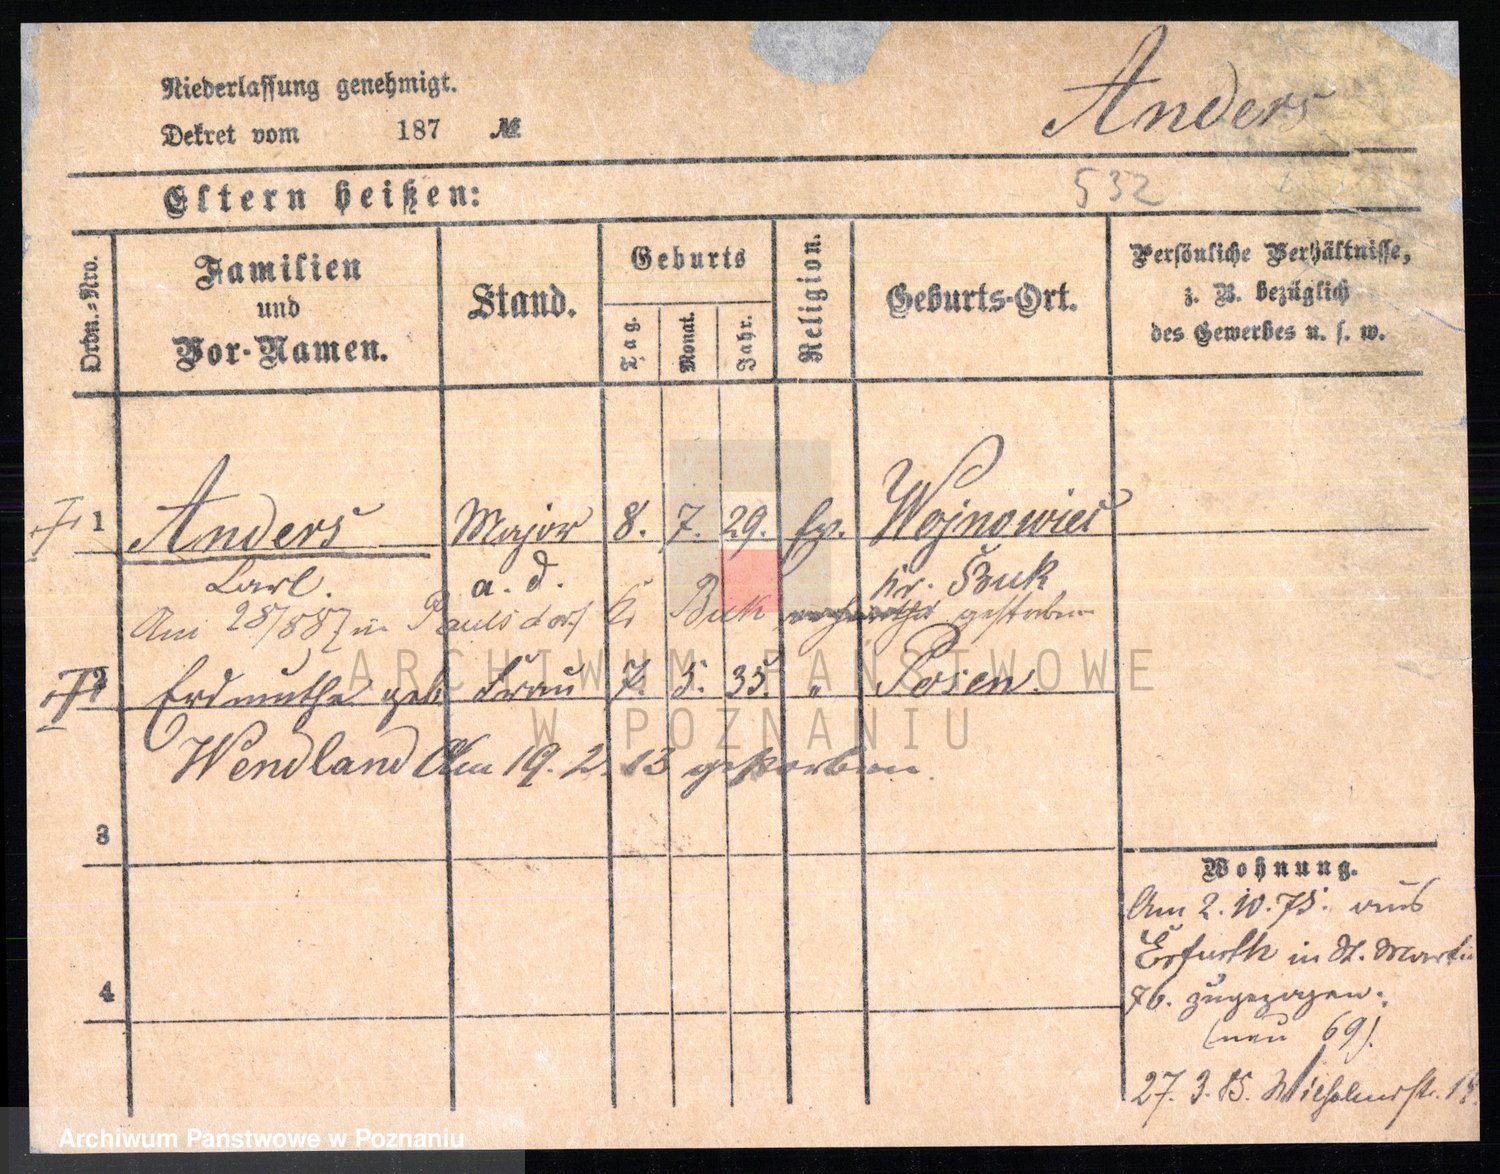 Niederlassung genehmigt.
Anders
Dekret vom 187 №
532
Eltern heißen:
Ordn.-Nro.
Familien
und
Vor-Namen.
Stand.
Geburts
Tag.
Monat.
Jahr.
Religion.
Geburts-Ort.
Persönliche Verhältnisse,
z. B. bezüglich
des Gewerbes u. s. w.
1 Anders Major 8. 7. 29. Ev. Wojnowiec
Carl. a. d. Kr. Buk
Am 28/8 87 in Paulsdorf Kr Buk gestorben
2 Erdmuthe geb. Frau 7. 5. 35. „ Posen.
Wendland Am 19. 2. 13 gestorben.
3
Wohnung.
Am 2. 10. 75. aus
Erfurth in St. Martin
zugezogen.
(neu 69).
4
27. 3. 85. Wilhelmstr.
ARCHIWUM PAŃSTWOWE
W POZNANIU
Archiwum Państwowe w Poznaniu